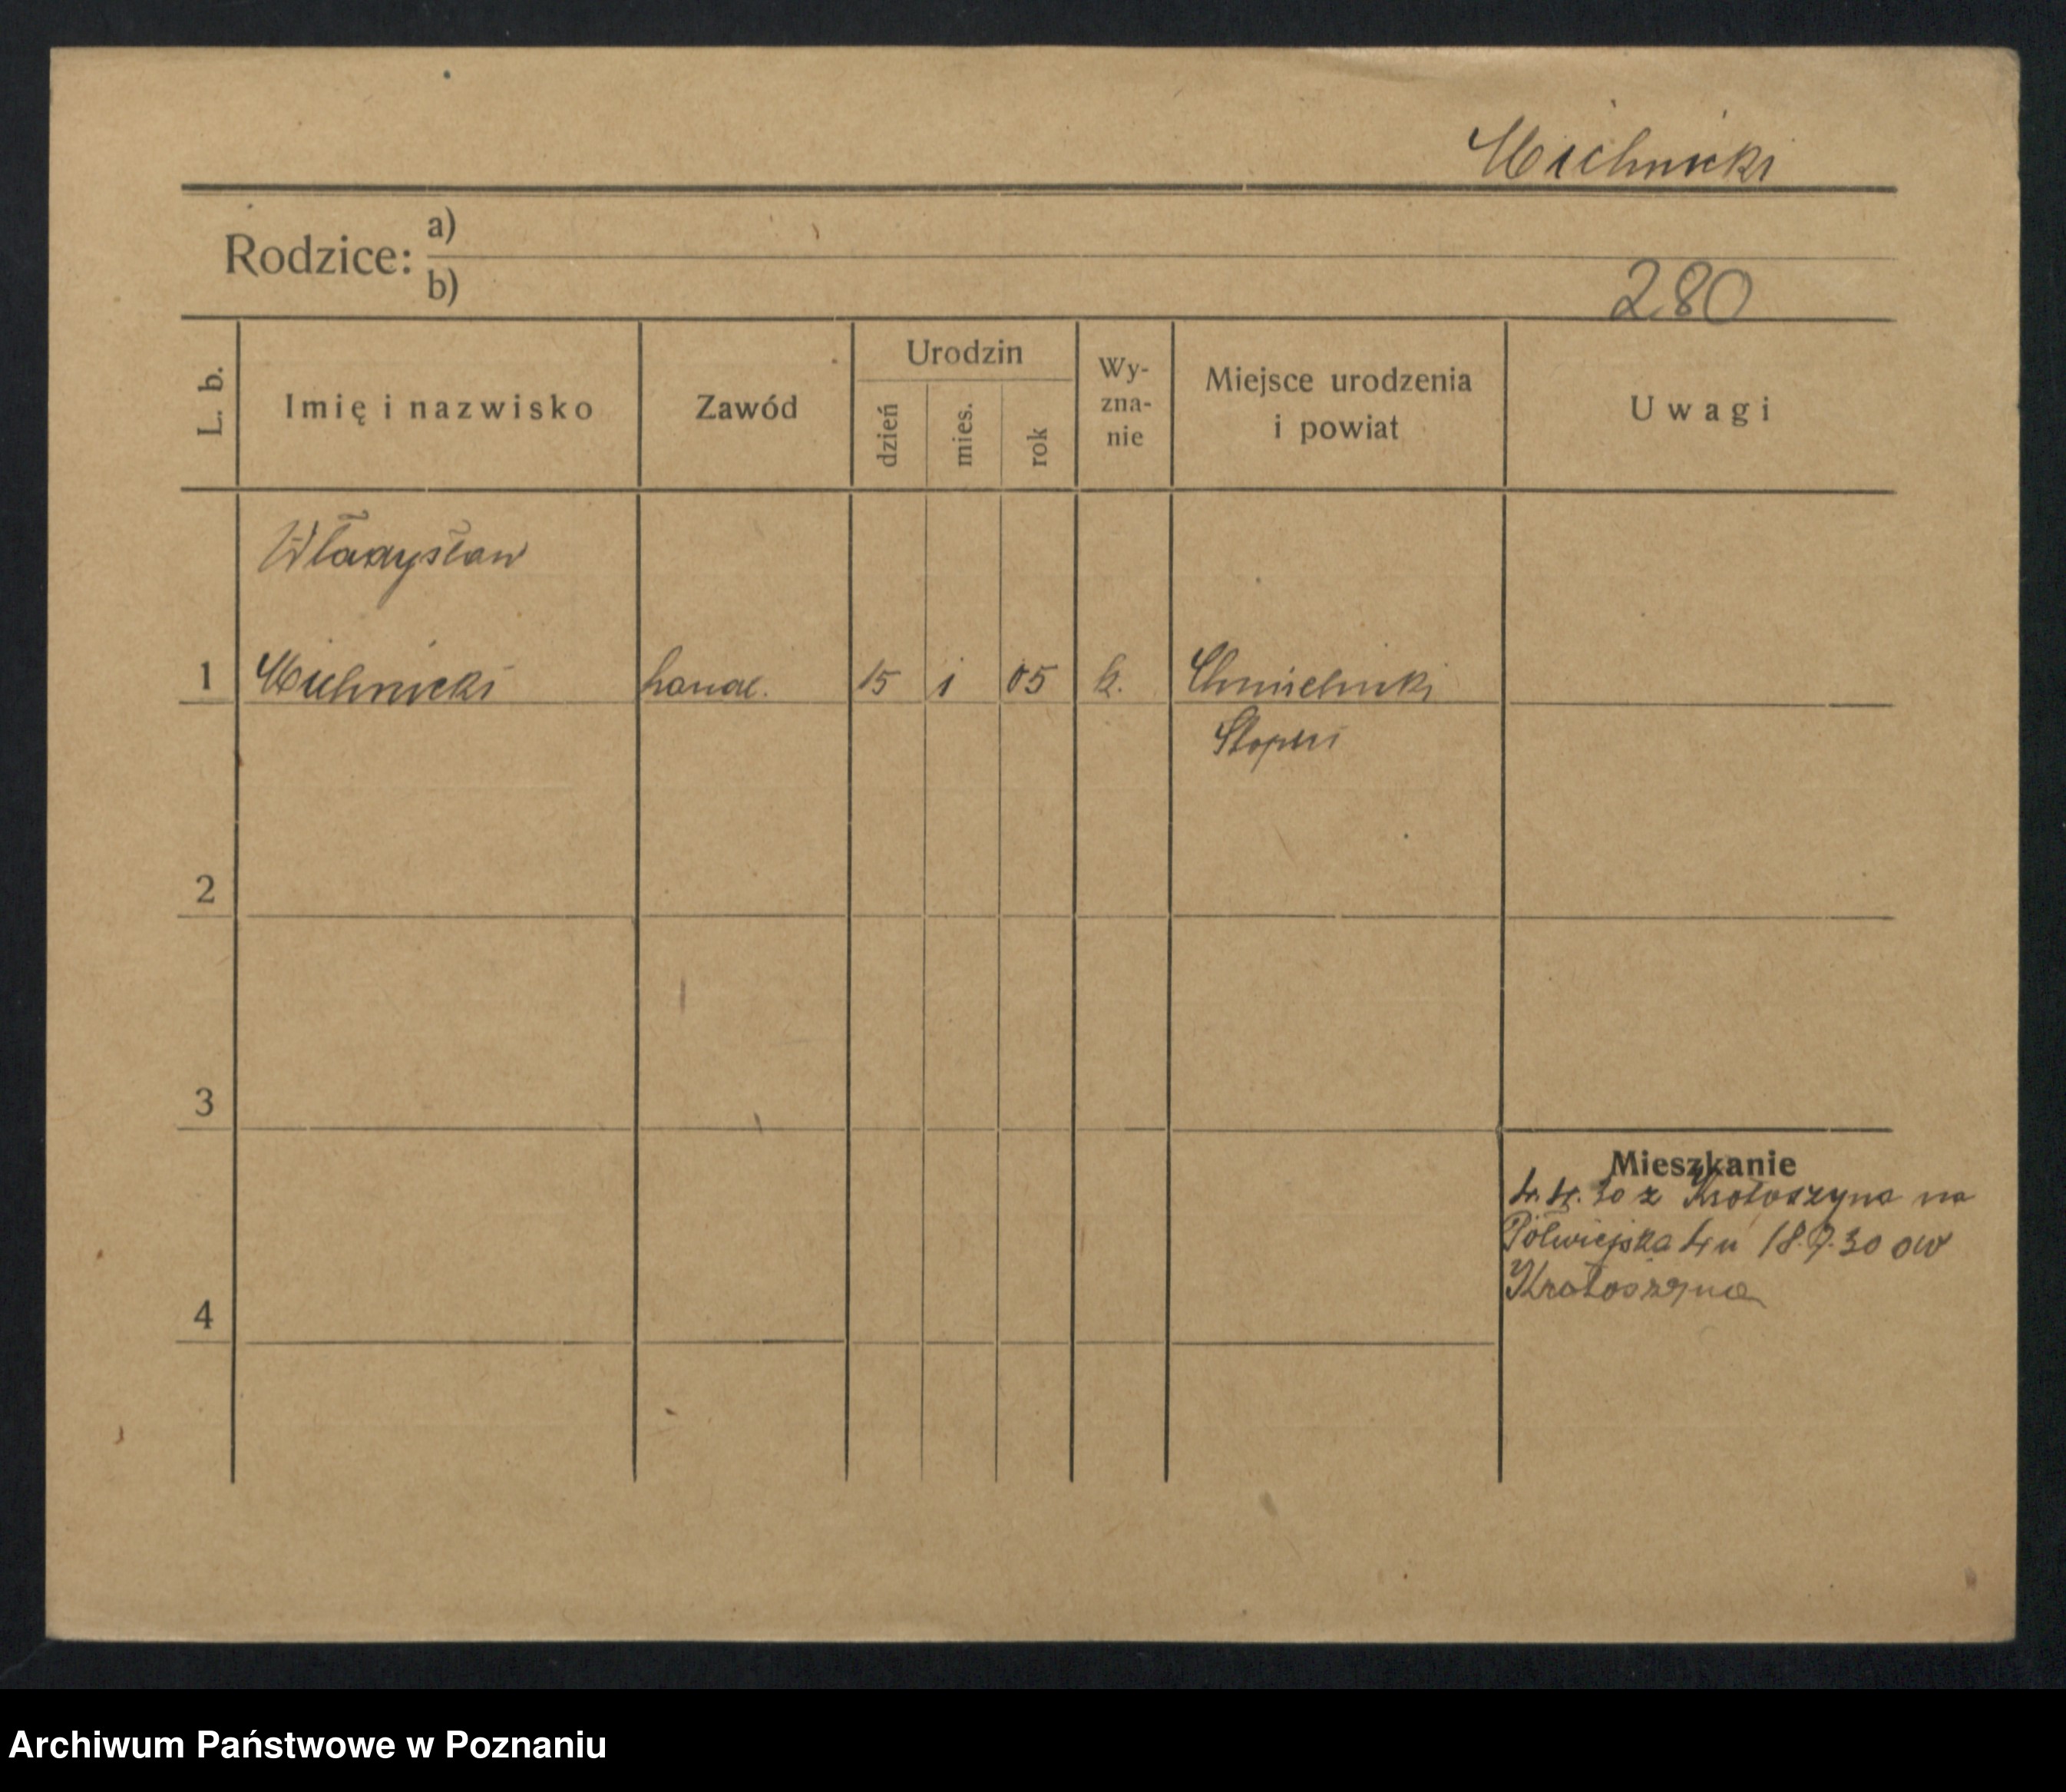 Michnicki
Rodzice: a)
b)
280
L. b.
Imię i nazwisko
Zawód
Urodzin
dzień
mies.
rok
Wy-
zna-
nie
Miejsce urodzenia
i powiat
Uwagi
Władysław
1 Michnicki handl. 15 1 05 k. Chmielniki
2
3
Mieszkanie
4. 4. 30 z Krotoszyna na
Półwiejska 4 u 18.9.30 do
Krotoszyna
4
Archiwum Państwowe w Poznaniu